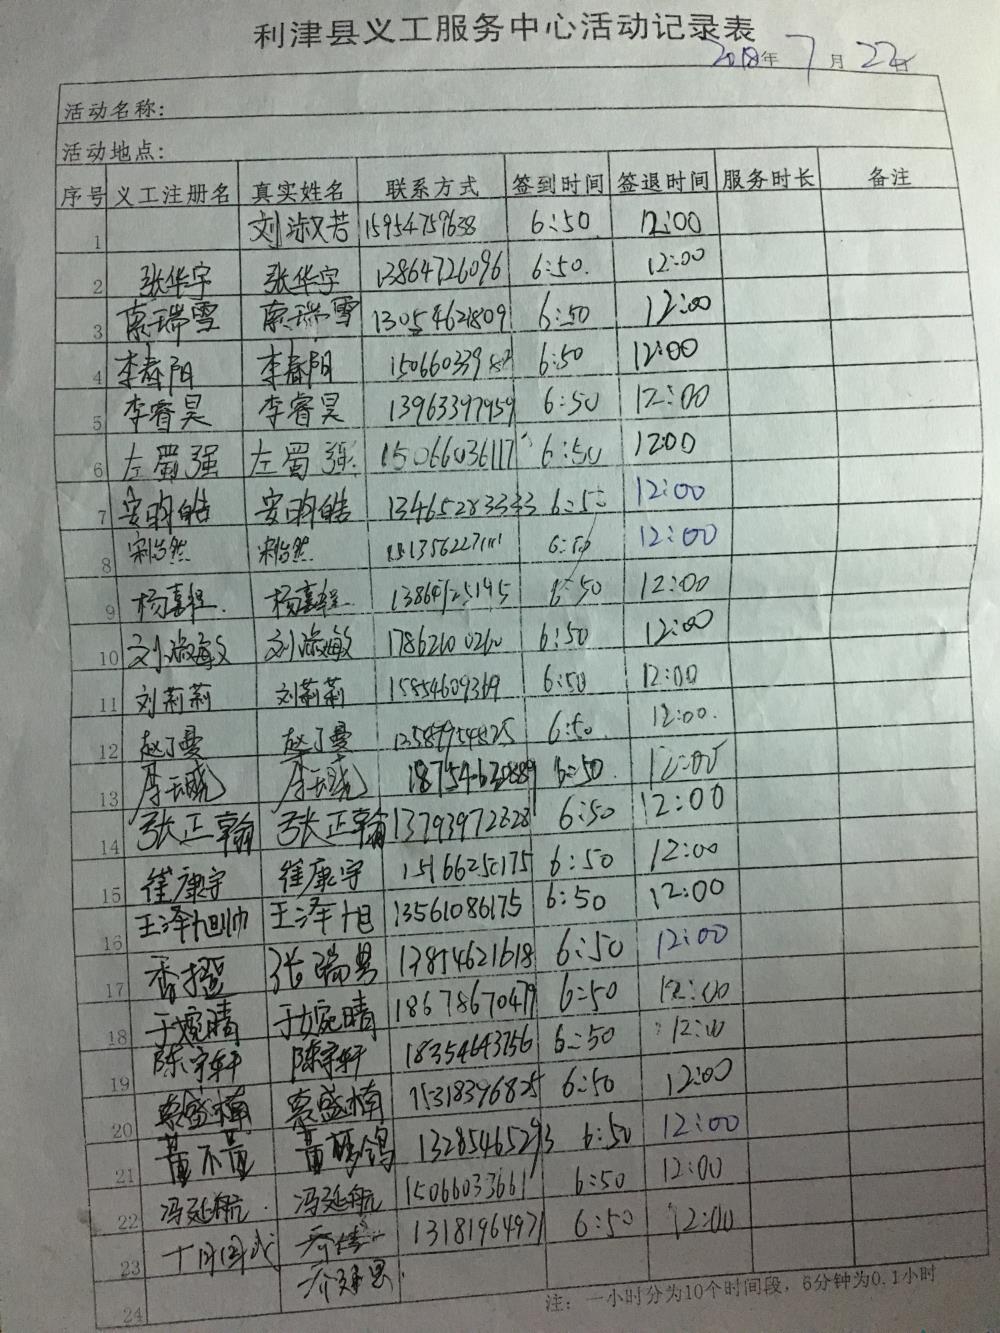 利津县义工服务中心活动记录表
2018年 7月 22日
活动名称:
活动地点:
序号 义工注册名 真实姓名 联系方式 签到时间 签退时间 服务时长 备注
1 刘淑芳 15954759638 6:50 12:00
2 张华宇 张华宇 13864726096 6:50 12:00
3 瑞雪 瑞雪 13054621809 6:50 12:00
4 李春阳 李春阳 6:50 12:00
5 李睿昊 李睿昊 13963397959 6:50 12:00
6 左蜀强 左蜀强 15066036117 6:50 12:00
7 安昀皓 安昀皓 13465283333 6:50 12:00
8 宋怡然 宋怡然 6:50 12:00
9 杨喜程 杨喜程 6:50 12:00
10 刘淑敏 刘淑敏 17862100260 6:50 12:00
11 刘莉莉 刘莉莉 15854609369 6:50 12:00
12 赵丁曼 赵丁曼 6:50 12:00
13 18754630889 6:50 12:00
14 张正翰 张正翰 13793972628 6:50 12:00
15 崔康宇 崔康宇 15166250175 6:50 12:00
16 王泽旭帅 王泽旭 13561086175 6:50 12:00
17 香橙 张瑞男 17854621618 6:50 12:00
18 于婉晴 于婉晴 18678670479 6:50 12:00
19 陈宇轩 陈宇轩 18354643756 6:50 12:00
20 盛楠 盛楠 15318396825 6:50 12:00
21 董不董 董 13285465293 6:50 12:00
22 冯延航 冯延航 15066033661 6:50 12:00
23 13181964971 6:50 12:00
24
注: 一小时分为10个时间段，6分钟为0.1小时